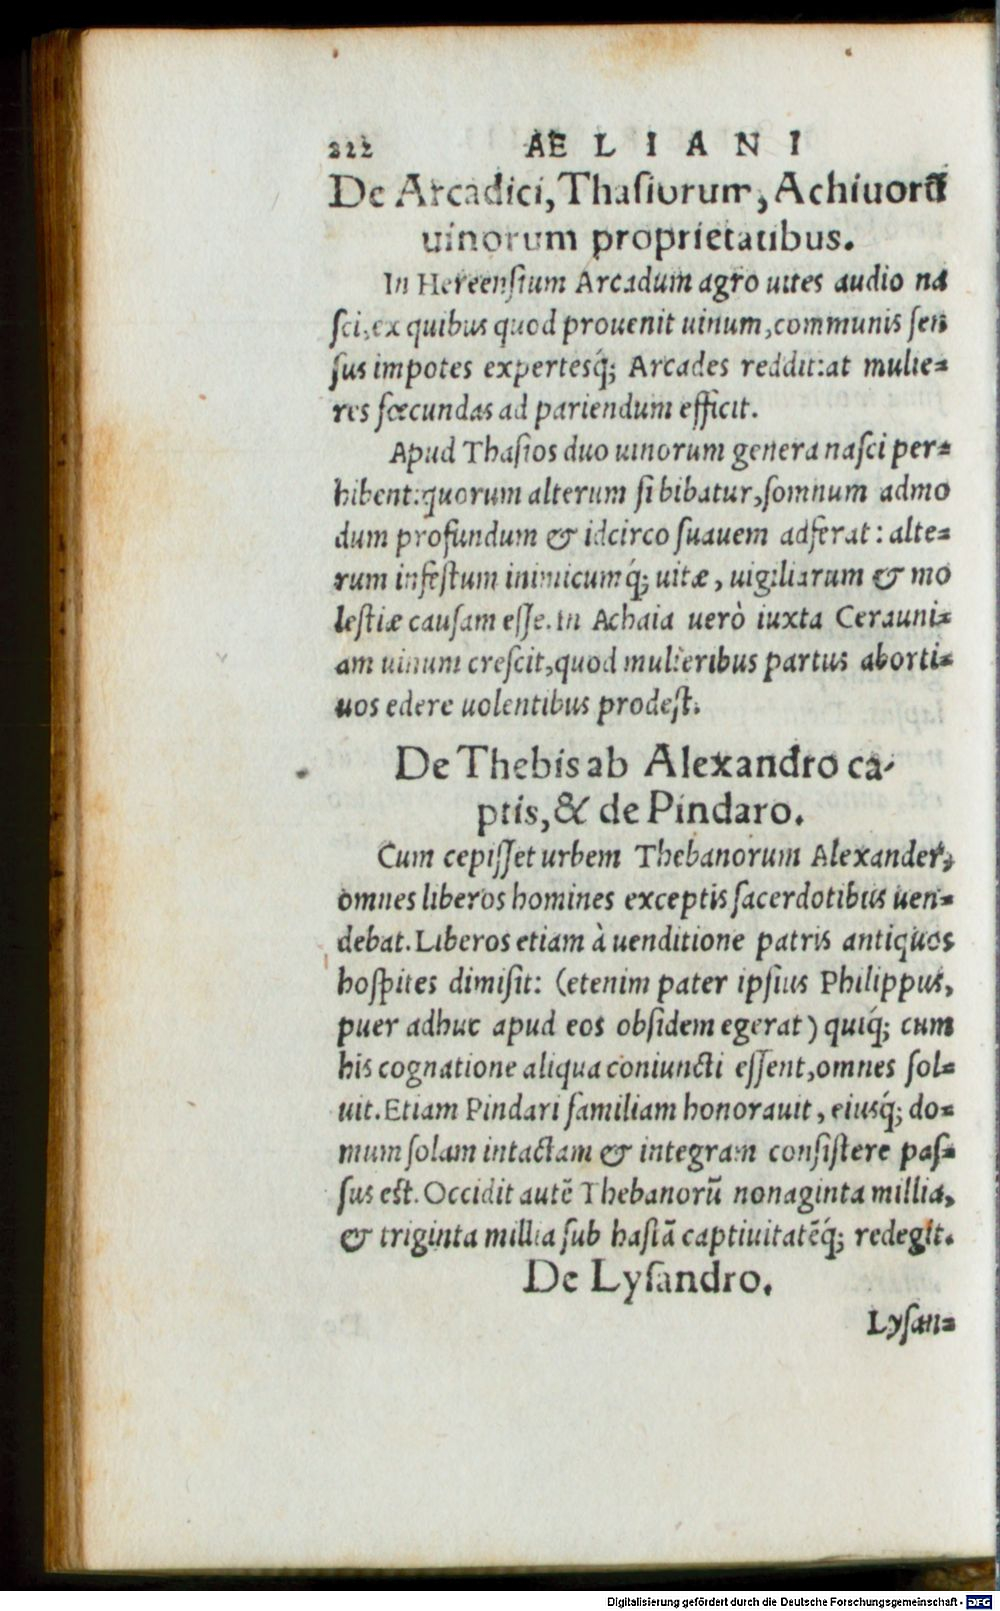 222 AELIANI
De Arcadici, Thasiorum, Achiuorū
uinorum proprietatibus.
In Hereensium Arcadum agro uites audio na
sci, ex quibus quod prouenit uinum, communis sen
sus impotes expertesq́; Arcades reddit: at mulie-
res fœcundas ad pariendum efficit.
Apud Thasios duo uinorum genera nasci per-
hibent: quorum alterum si bibatur, somnum admo
dum profundum & idcirco suauem adferat: alte-
rum infestum inimicumq́; uitæ, uigiliarum & mo
lestiæ causam esse. In Achaia uerò iuxta Cerauni-
am uinum crescit, quod mulieribus partus aborti-
uos edere uolentibus prodest.
De Thebis ab Alexandro ca-
ptis, & de Pindaro.
Cum cepisset urbem Thebanorum Alexander,
omnes liberos homines exceptis sacerdotibus uen-
debat. Liberos etiam à uenditione patris antiquos
hospites dimisit: (etenim pater ipsius Philippus,
puer adhuc apud eos obsidem egerat) quiq́; cum
his cognatione aliqua coniuncti essent, omnes sol-
uit. Etiam Pindari familiam honorauit, eiusq́; do-
mum solam intactam & integram consistere pas-
sus est. Occidit autē Thebanorū nonaginta millia,
& triginta millia sub hastā captiuitatēq́; redegit.
De Lysandro.
Lysan-
Digitalisierung gefördert durch die Deutsche Forschungsgemeinschaft - DFG